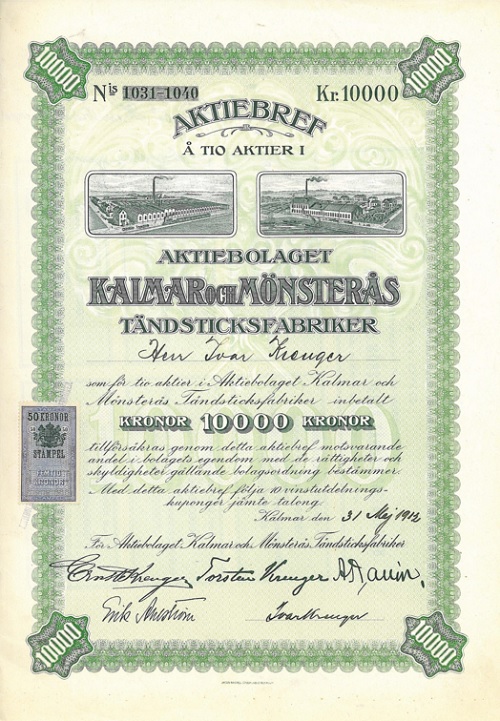 10000 10000
Nis 1031-1040 Kr. 10000
AKTIEBREF
Å TIO AKTIER I
AKTIEBOLAGET
KALMAR OCH MÖNSTERÅS
TÄNDSTICKSFABRIKER
Herr Ivar Kreuger
som för tio aktier i Aktiebolaget Kalmar och
Mönsterås Tändsticksfabriker inbetalt
KRONOR 10000 KRONOR
tillförsäkras genom detta aktiebref motsvarande
andel i bolagets egendom med de rättigheter och
skyldigheter gällande bolagsordning bestämmer.
Med detta aktiebref följa 10 vinstutdelnings-
kuponger jämte talong.
Kalmar den 31 Maj 1912
För Aktiebolaget Kalmar och Mönsterås Tändsticksfabriker
50 KRONOR
STÄMPEL
FEMTIO
KRONOR
Ernst Kreuger Torsten Kreuger
Erik Ahlström Ivar Kreuger
10000 10000